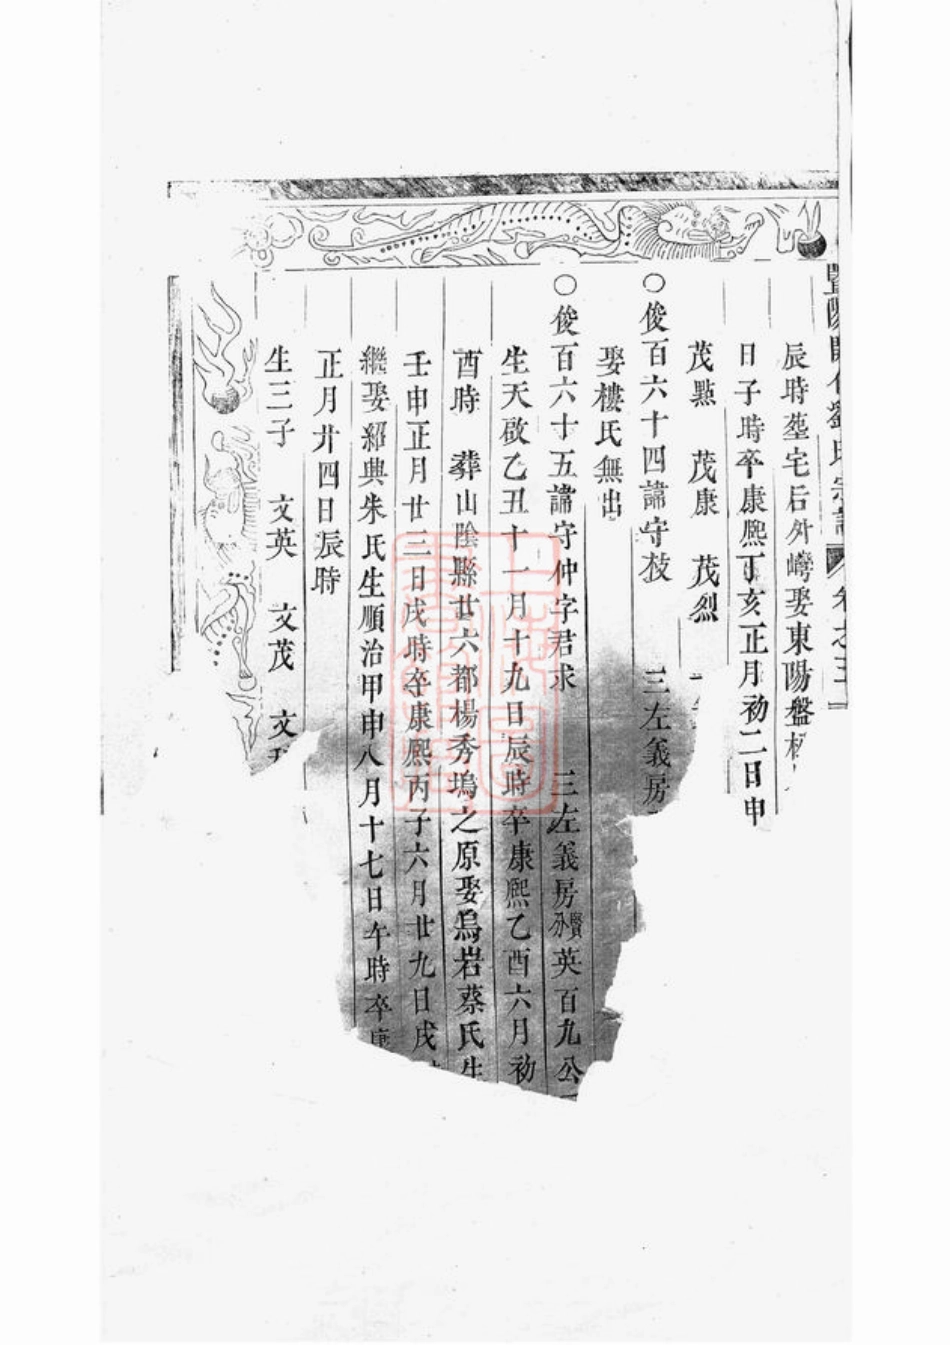 暨陽開化劉氏宗譜 卷之三
辰時塟宅后外嶹娶東陽盤
日子時卒康熙丁亥正月初二日申
茂㸃 茂康 茂烈
○俊百六十四諱守枝 三左義房
娶樓氏無出
○俊百六十五諱守仲字君求 三左義房賢分英百九公
生天啟乙丑十一月十九日辰時卒康熙乙酉六月初
酉時 葬山陰縣廿六都楊秀塢之原娶烏岩蔡氏生
壬申正月廿三日戌時卒康熙丙子六月廿九日戌
繼娶紹興朱氏生順治甲申八月十七日午時卒康
正月廿四日辰時
生三子 文英 文茂 文